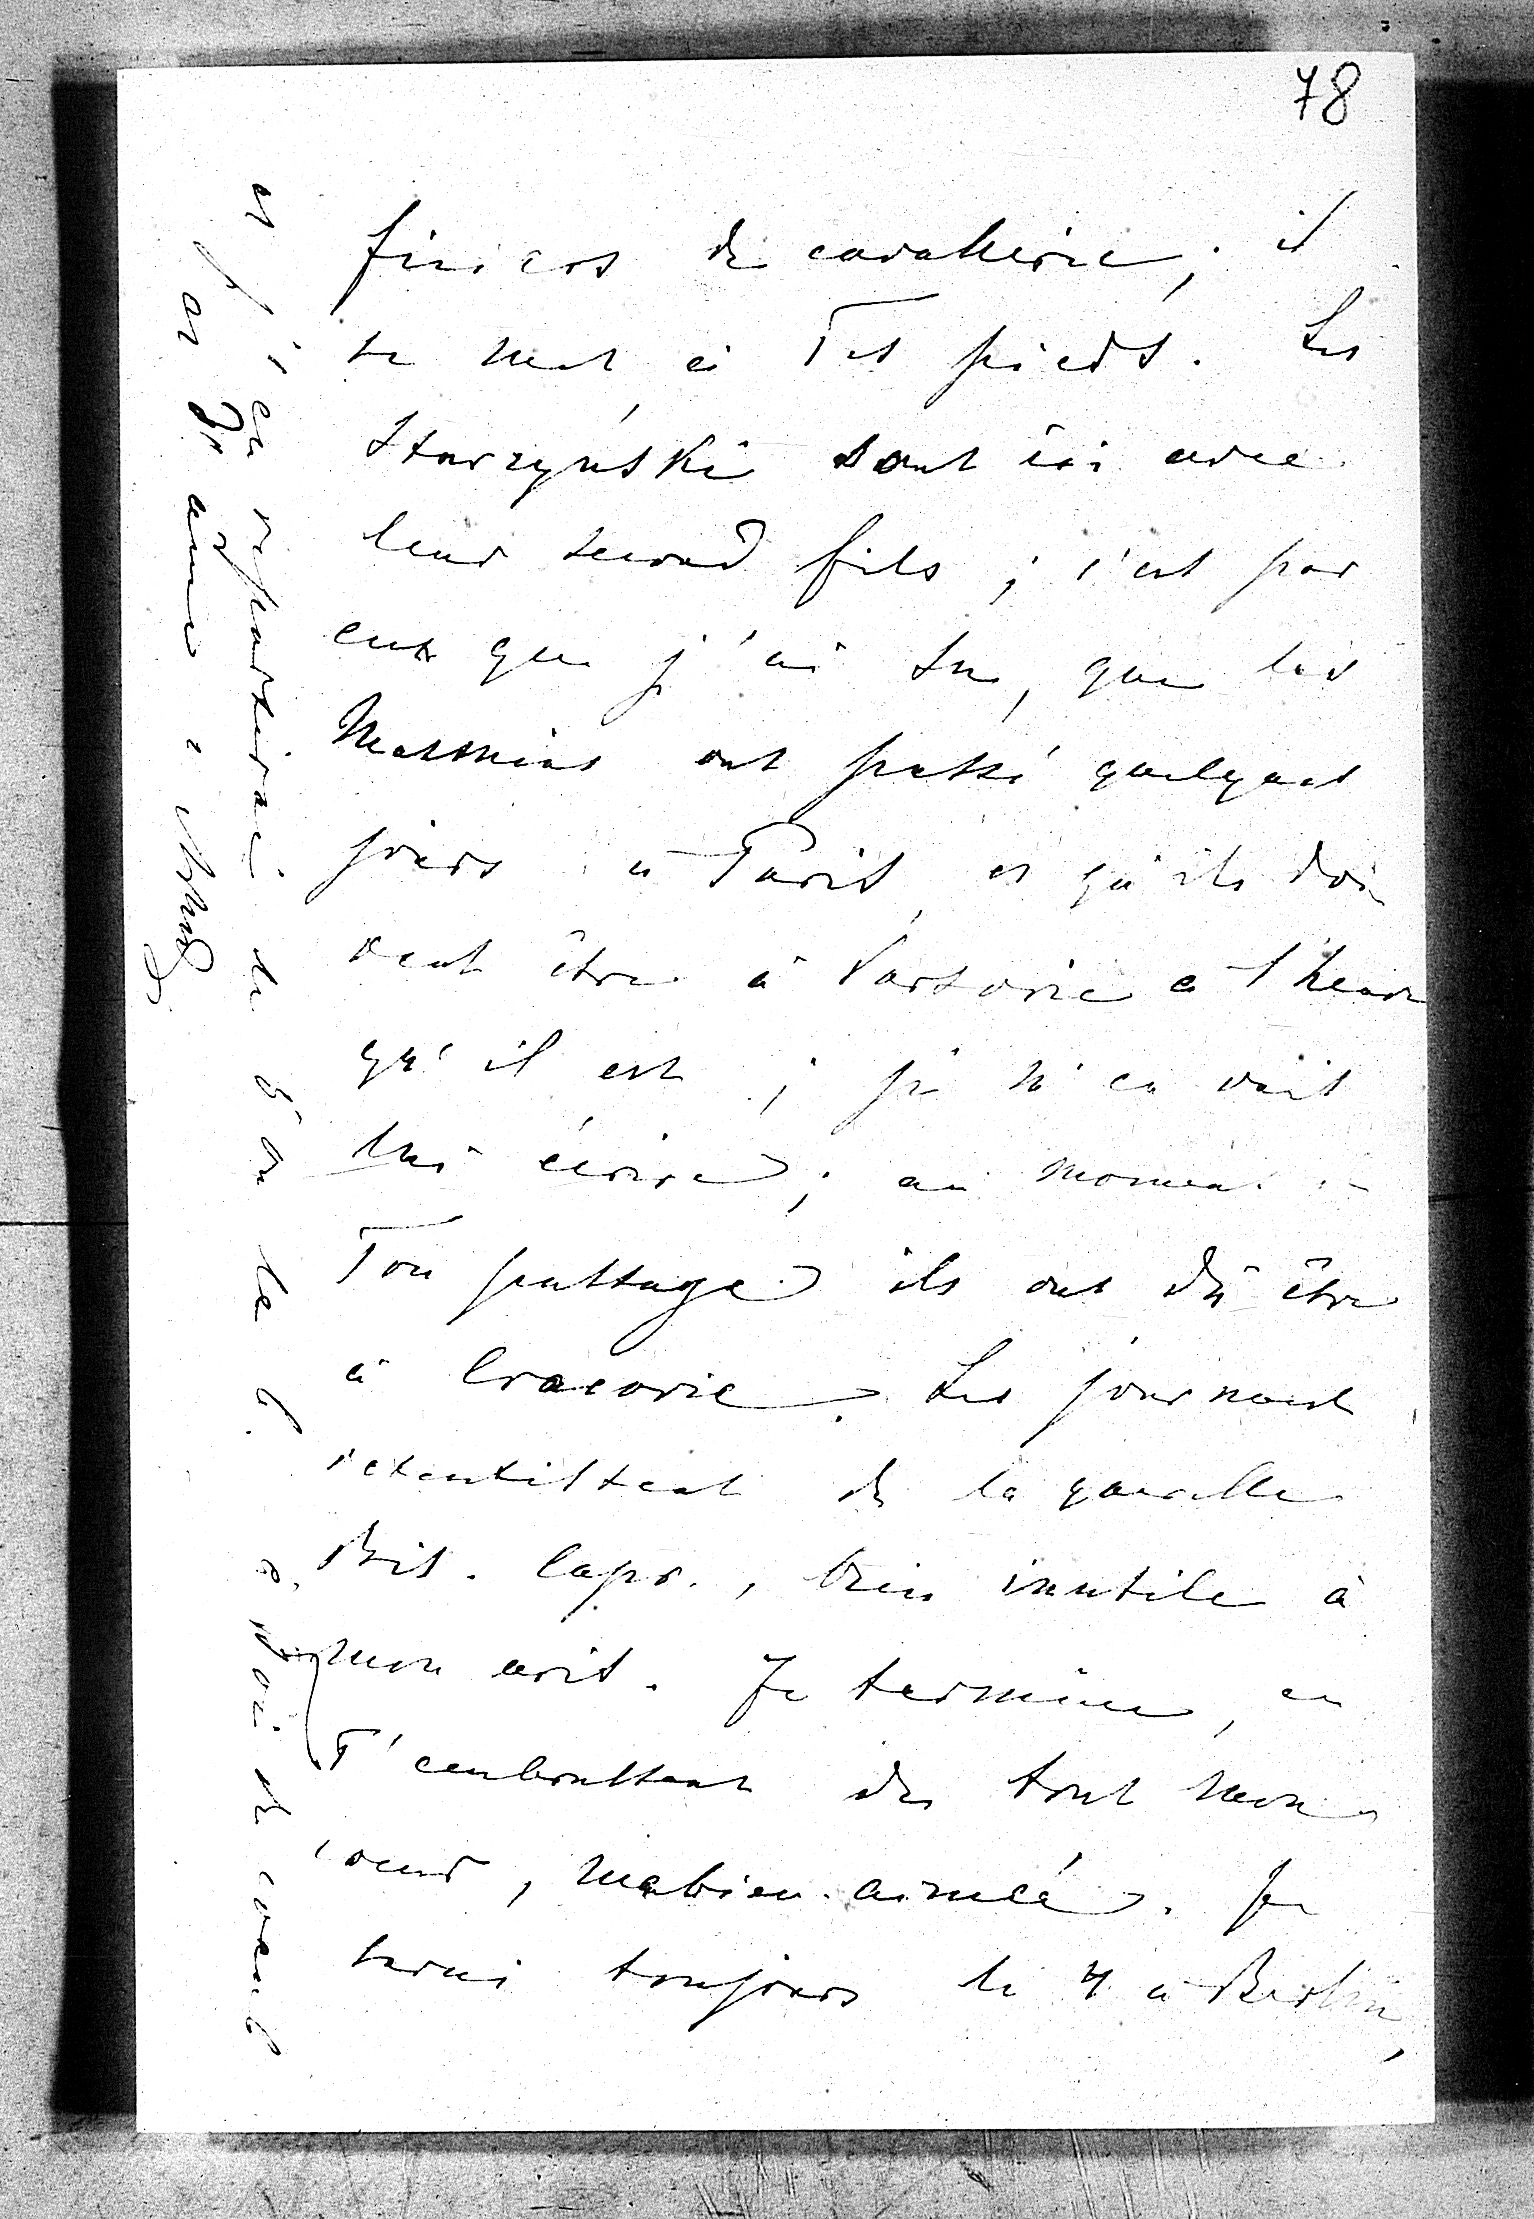 78
ficiers de cavallerie; il
se met à Tes pieds. Les
Starzyński sont ici avec
leur second fils; c'est par
eux que j'ai su, que les
ont passé quelques
jours à Paris, et qu'ils doi
vent être à Varsovie à l'heure
qu'il est; je m'en vais
lui écrire; au moment
Ton passage ils ont dû être
à Cracovie. Les journaux
retentissent de la querelle
Bis. Capr., bien inutile à
mon avis. Je termine, en
T'embrassant de tout mon
coeur, ma bien-aimée. Je
serai toujours le 4 à Berlin,
et j'en repartirai le 5 ou le 6.